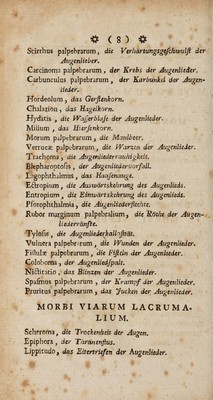 ( 8 )
Scirrhus palpebrarum, die Verhärtungsgeschwulst der
Augenlieder.
Carcinoma palpebrarum, der Krebs der Augenlieder.
Carbunculus palpebrarum, der Karbunkel der Augen-
lieder.
Hordeolum, das Gerstenkorn.
Chalazion, das Hagelkorn.
Hydatis, die Wasserblase der Augenlieder.
Milium, das Hirsenkorn.
Morum palpebrarum, die Maulbeer.
Verrucæ palpebrarum, die Warzen der Augenlieder.
Trachoma, die Augenliederrauhigkeit.
Blepharoptosis, der Augenliedervorfall.
Lagophthalmus, das Haasenauge.
Ectropium, die Auswärtskehrung des Augenlieds.
Entropium, die Einwärtskehrung des Augenlieds.
Psorophthalmia, die Augenliederkrätze.
Rubor marginum palpebralium, die Röthe der Augen-
liederränfte.
Tylosis, die Augenliederkallosität.
Vulnera palpebrarum, die Wunden der Augenlieder.
Fistulæ palpebrarum, die Fisteln der Augenlieder.
Coloboma, der Augenliedspalt.
Nictitatio, das Blinzen der Augenlieder.
Spasmus palpebrarum, der Krampf der Augenlieder.
Pruritus palpebrarum, das Jucken der Augenlieder.
MORBI VIARUM LACRUMA-
LIUM.
Scheroma, die Trockenheit der Augen.
Epiphora, der Thränenfluss.
Lippitudo, das Eitertriefen der Augenlieder.